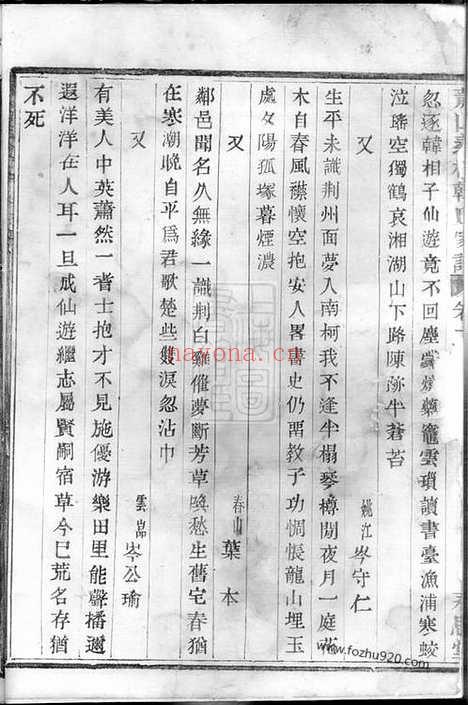 忽逐韓相子仙遊竟不回塵藥竈雲瑣讀書臺漁浦寒蛟
泣聯空獨鶴哀湘湖山下路陳莎半蒼苔
又
姚江岑守仁
生平未識荆州面夢入南柯我不逢半榻琴樽閒夜月一庭花
木自春風襟懷空抱安人畧書史仍畱教子功惆悵龍山埋玉
處夕陽孤塚暮煙濃
又
春山葉本
鄰邑聞名久無緣一識荆白雞催夢斷芳草喚愁生舊宅春猶
在寒潮晚自平爲君歌楚些幾淚忽沾巾
又
雲嵓岑公瑜
有美人中英蕭然一耆士抱才不見施優游樂田里能聲播邇
遐洋洋在人耳一旦成仙遊繼志屬賢嗣宿草今已荒名存猶
不死
nayona.cn
www.fozhu920.com